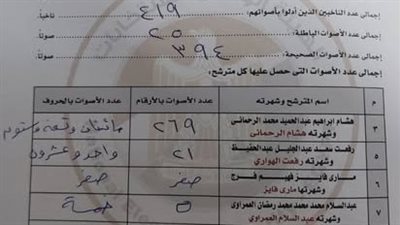 إجمالى عدد الناخبين الذين أدلوا بأصواتهم: ٤١٩ ناخباً.
إجمالى عدد الأصوات الباطلة: ٢٥ صوتاً.
إجمالى عدد الأصوات الصحيحة: ٣٩٤ صوتاً.
إجمالى عدد الأصوات التى حصل عليها كل مترشح:
م اسم المترشح وشهرته عدد الأصوات بالأرقام عدد الأصوات بالحروف
٣ هشام ابراهيم عبدالحميد محمد الرحمانى وشهرته هشام الرحمانى ٢٦٩ مائتان وتسعة وستون
٥ رفعت سعد عبدالجليل عبدالحفيظ وشهرته رفعت الهوارى ٢١ واحد وعشرون
٦ مارى فايز فهيم فرج وشهرتها مارى فايز صفر صفر
٧ عبدالسلام محمد محمد محمد رمضان العمراوى وشهرته عبد السلام العمراوى ٥ خمسة